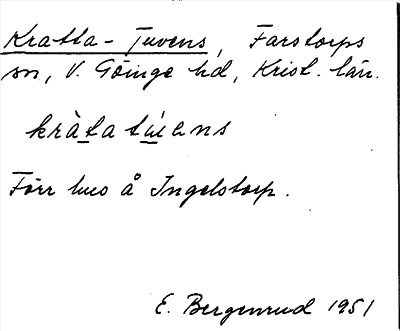 Kratta-Tuvens, Farstorps
sn, V. Göinge hd, Krist. län.
kràta túens
Förr hus å Ingelstorp.
E. Bergenrud 1951